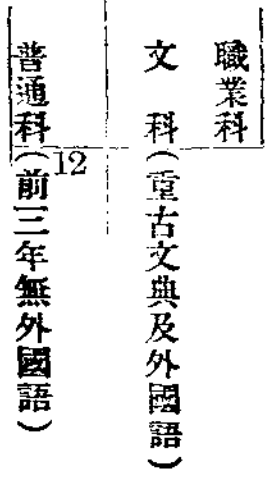 職業科
文科(重古文典及外國語)
普通科(前三年無外國語)
12